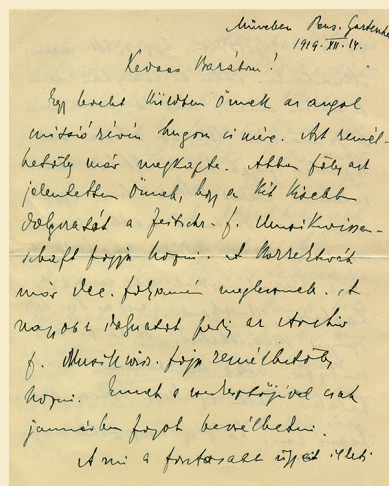 München Pens. Gartenhei
1919. XII. 14.
Kedves Barátom!
Egy levelet küldtem Önnek az angol
misszió révén hugom címére. Azt remél-
hetőleg már megkapta. Abban főleg azt
jelentettem Önnek, hogy a két kisebb
dolgozatát a Zeitschr. f. Musikwissen-
schaft fogja hozni. A korrekturák
már dec. folyamán meglesznek. A
nagyobb dolgozatot pedig az Archiv
f. Musikwiss. fogja remélhetőleg
hozni. Ennek a szerkesztőjével csak
januárban fogok beszélhetni.
Ami a fontosabb ügyet illeti